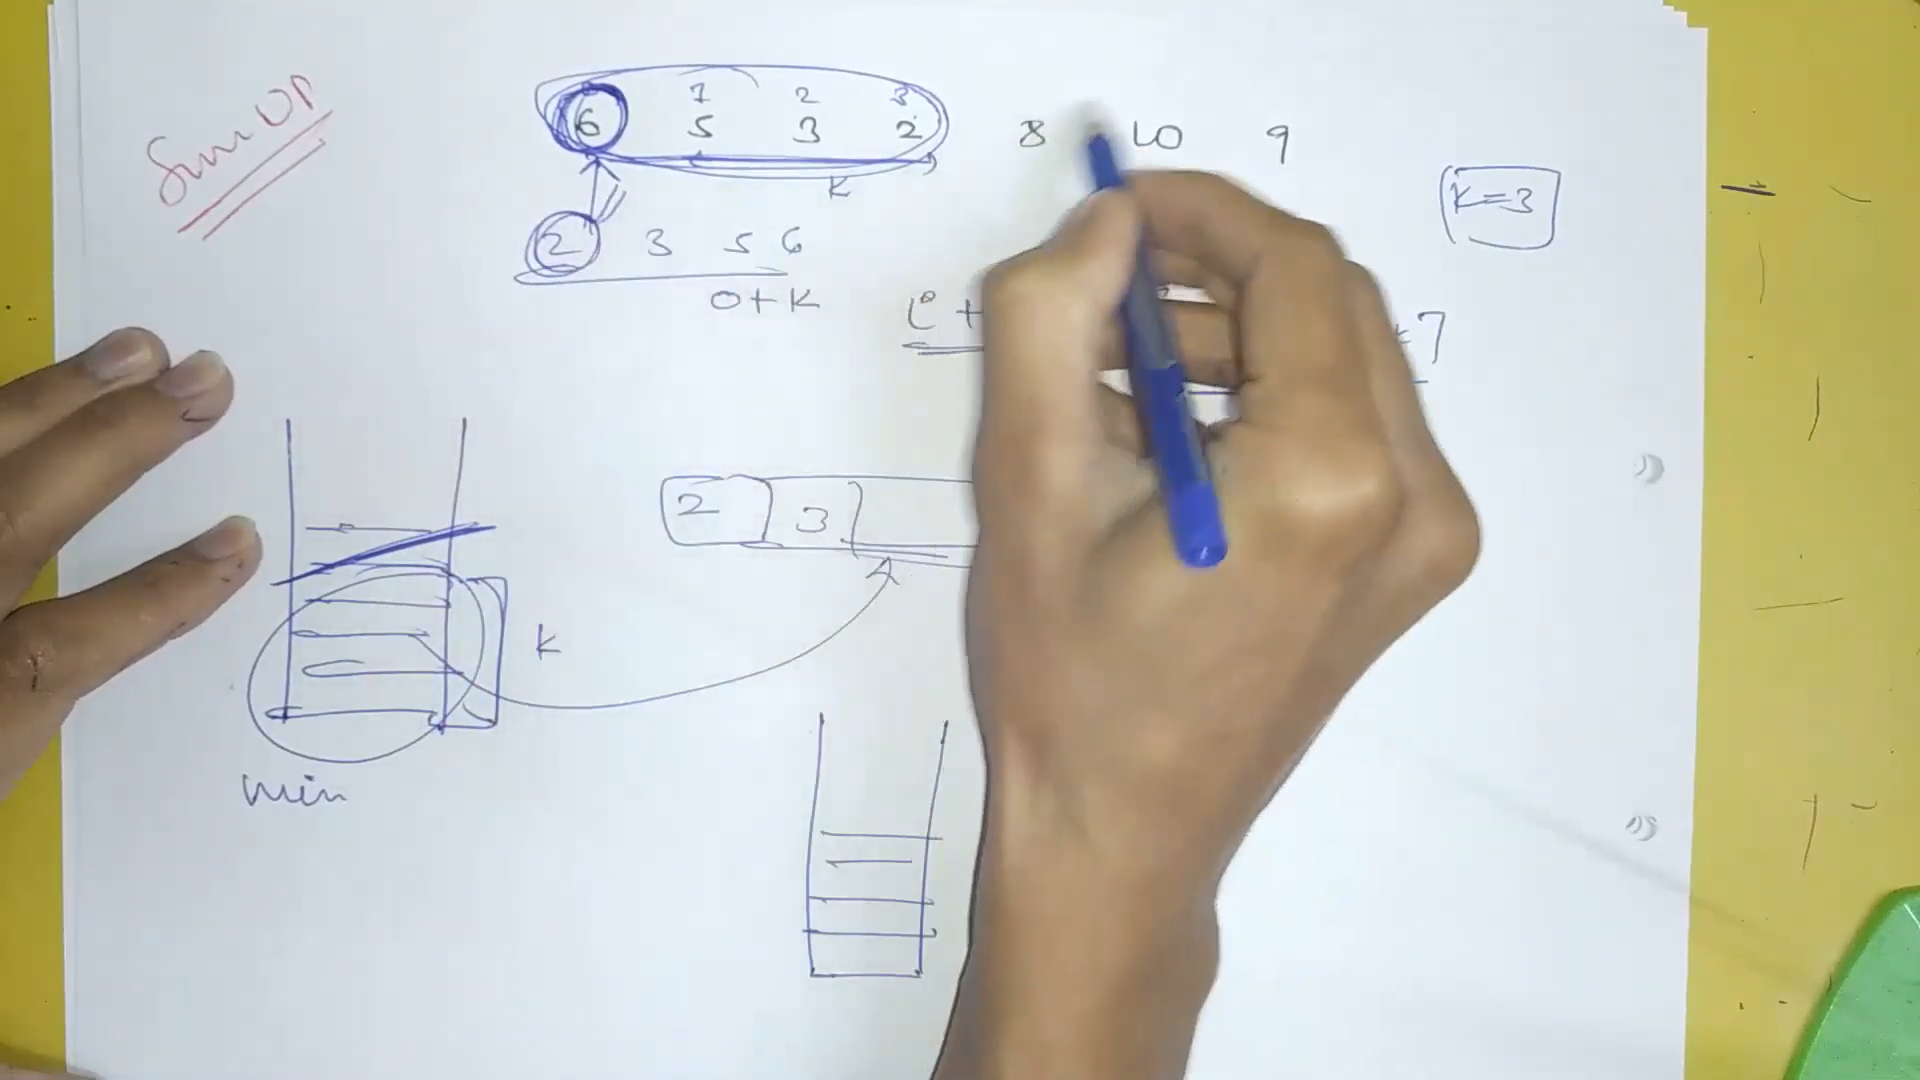 Sum UP
1 2 3
6 5 3 2 8 10 9
K
K=3
2 3 5 6
0+K
i+
7
2 3
K
min